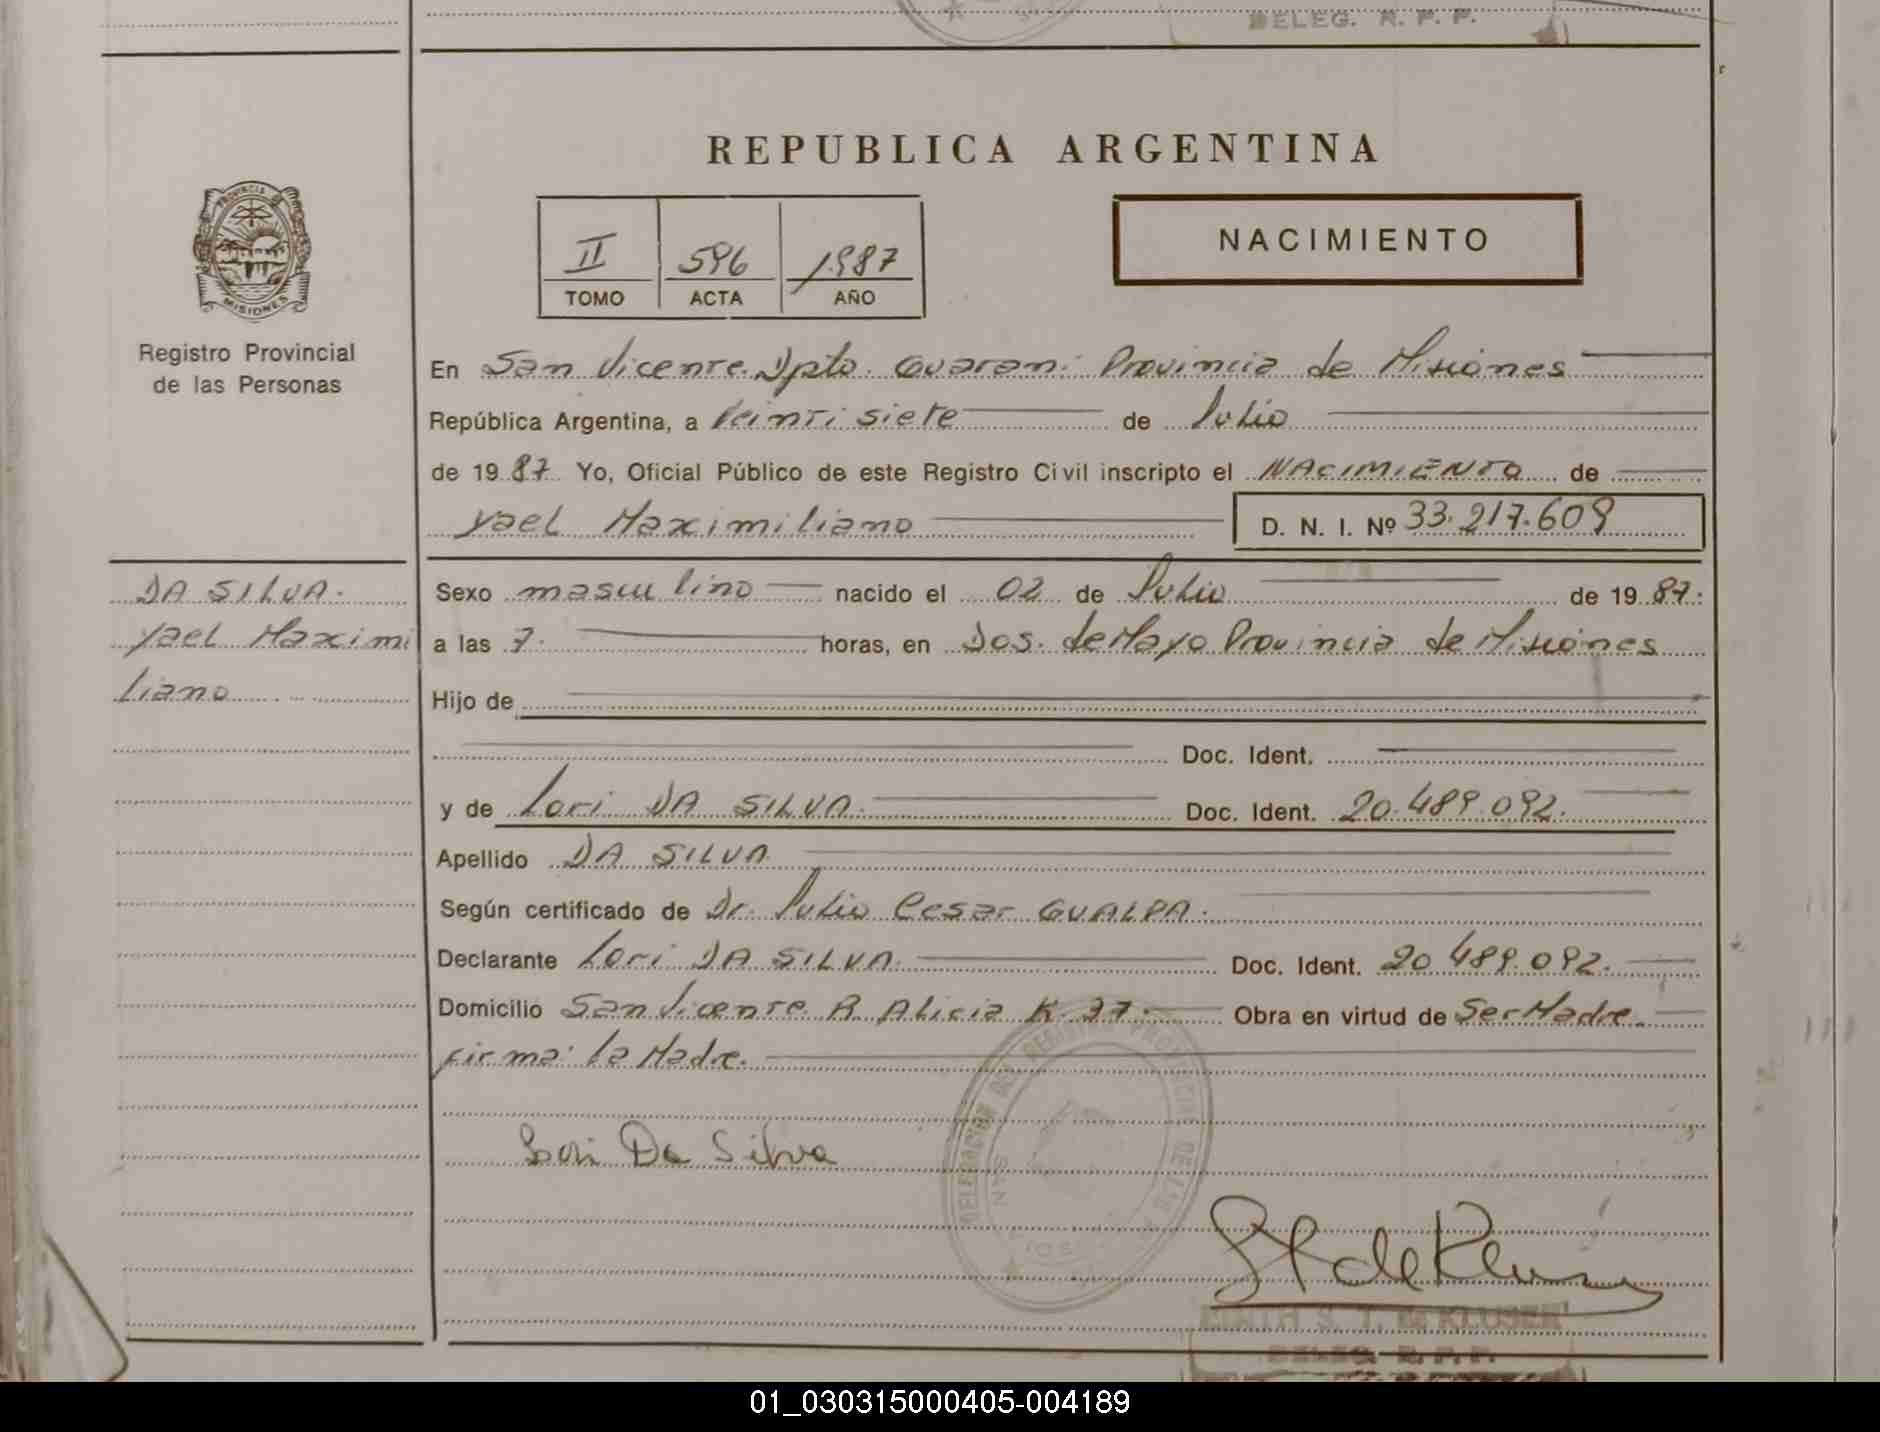 DELEG. R. P. P.
REPUBLICA ARGENTINA
PROVINCIA DE
MISIONES
Registro Provincial
de las Personas
II 596 1987
TOMO ACTA AÑO
NACIMIENTO
En San Vicente. Dpto. Guarani Provincia de Misiones
República Argentina, a Veinti siete de Julio
de 1987. Yo, Oficial Público de este Registro Civil inscripto el NACIMIENTO de
Yael Maximiliano D. N. I. Nº 33.217.609
DA SILVA.
Yael Maximi
liano
Sexo masculino nacido el 02 de Julio de 1987.
a las 7. horas, en Dos. de Mayo Provincia de Misiones
Hijo de
Doc. Ident.
y de Lori DA SILVA. Doc. Ident. 20.489.092.
Apellido DA SILVA
Según certificado de Dr. Julio Cesar GUALPA.
Declarante Lori DA SILVA. Doc. Ident. 20 489.092.
Domicilio San Vicente R. Alicia K. 37. Obra en virtud de Ser Madre.
Firma: La Madre.
Lori Da Silva
DELEGACION DEL REGISTRO PROVINCIAL DE LAS
SAN
EDITH S. T. de KLUSER
DELEG. R. P. P.
01_030315000405-004189